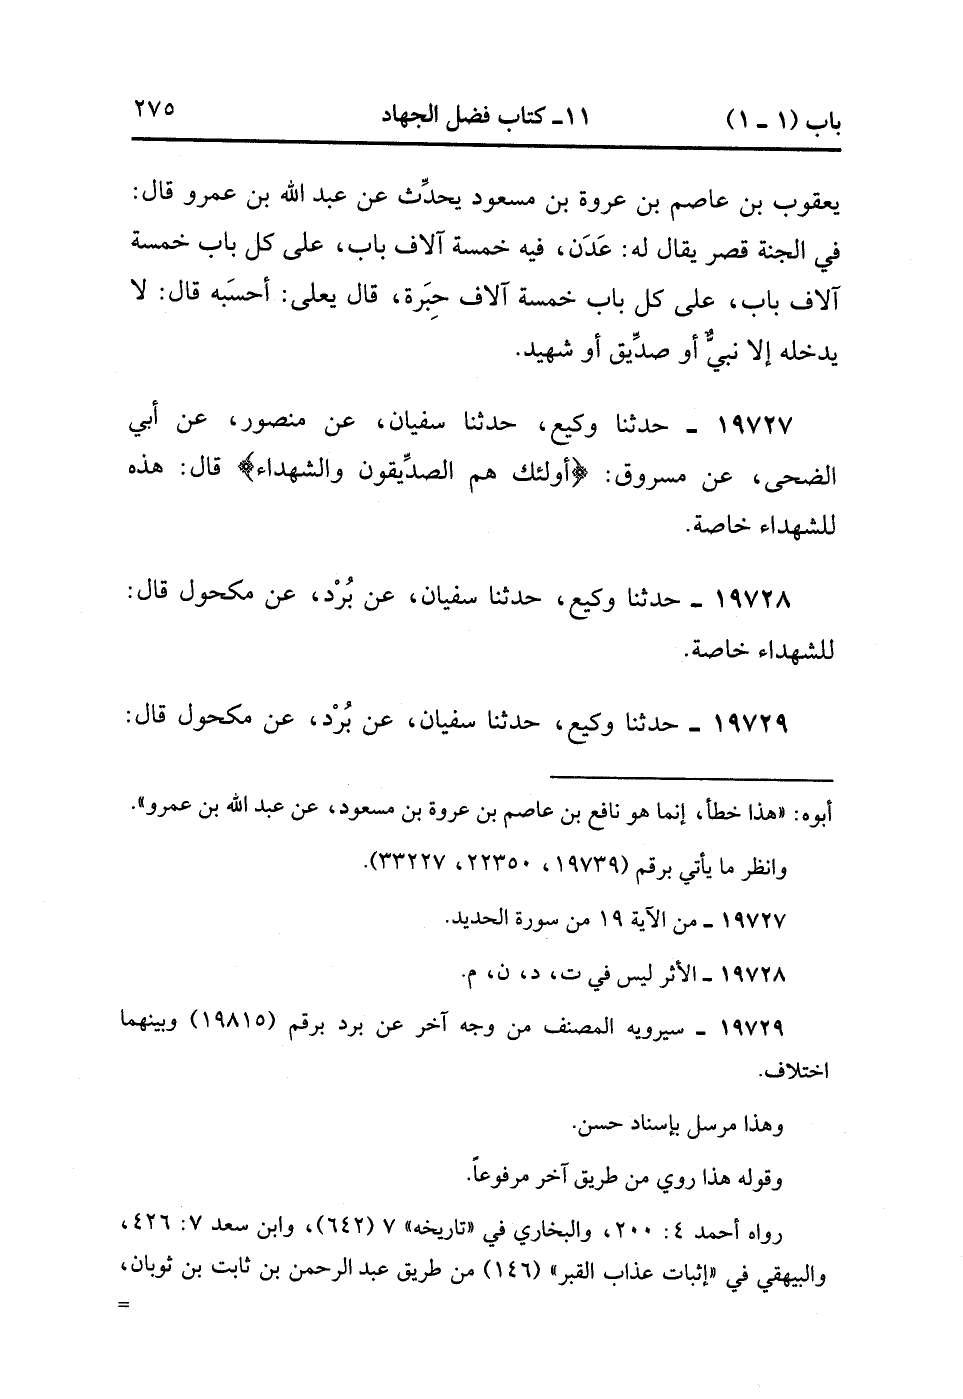 باب (١ - ١) ١١ - كتاب فضل الجهاد ٢٧٥
يعقوب بن عاصم بن عروة بن مسعود يحدِّث عن عبد الله بن عمرو قال:
في الجنة قصر يقال له: عَدَن، فيه خمسة آلاف باب، على كل باب خمسة
آلاف باب، على كل باب خمسة آلاف حِبَرة، قال يعلى: أحسَبه قال: لا
يدخله إلا نبيٌّ أو صدِّيق أو شهيد.
١٩٧٢٧ - حدثنا وكيع، حدثنا سفيان، عن منصور، عن أبي
الضحى، عن مسروق: ﴿أولئك هم الصدِّيقون والشهداء﴾ قال: هذه
للشهداء خاصة.
١٩٧٢٨ - حدثنا وكيع، حدثنا سفيان، عن بُرْد، عن مكحول قال:
للشهداء خاصة.
١٩٧٢٩ - حدثنا وكيع، حدثنا سفيان، عن بُرْد، عن مكحول قال:
أبوه: «هذا خطأ، إنما هو نافع بن عاصم بن عروة بن مسعود، عن عبد الله بن عمرو».
وانظر ما يأتي برقم (١٩٧٣٩، ٢٢٣٥٠، ٣٣٢٢٧).
١٩٧٢٧ - من الآية ١٩ من سورة الحديد.
١٩٧٢٨ - الأثر ليس في ت، د، ن، م.
١٩٧٢٩ - سيرويه المصنف من وجه آخر عن برد برقم (١٩٨١٥) وبينهما
اختلاف.
وهذا مرسل بإسناد حسن.
وقوله هذا روي من طريق آخر مرفوعاً.
رواه أحمد ٤: ٢٠٠، والبخاري في «تاريخه» ٧ (٦٤٢)، وابن سعد ٧: ٤٢٦،
والبيهقي في «إثبات عذاب القبر» (١٤٦) من طريق عبد الرحمن بن ثابت بن ثوبان،
=